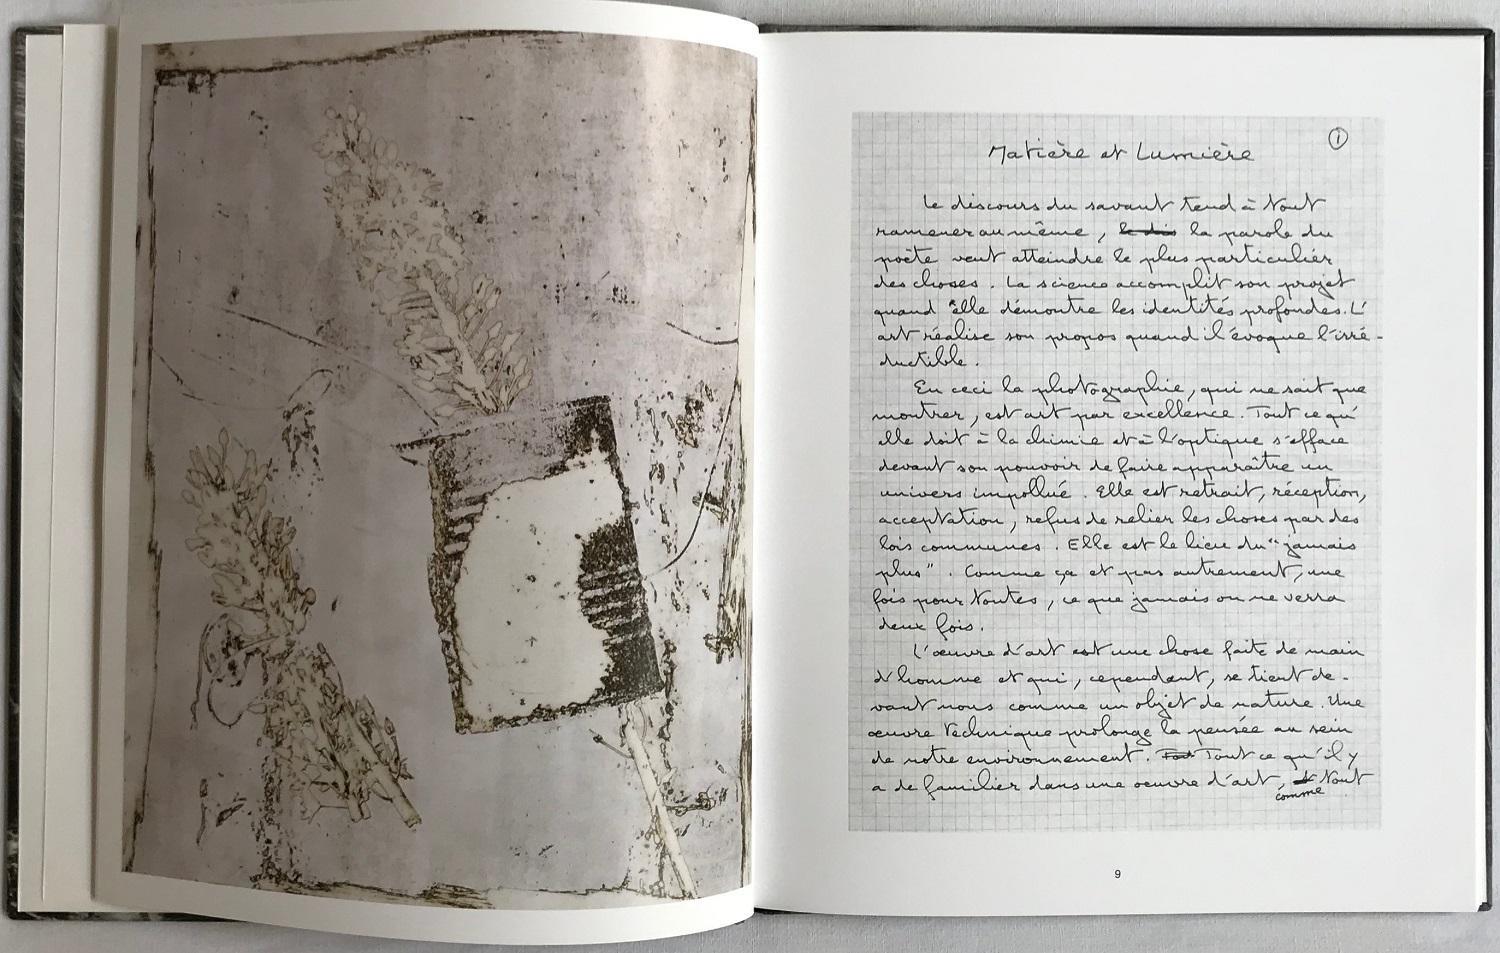 1
Matière et Lumière
Le discours du savant tend à tout
ramener au même, le dis la parole du
poète veut atteindre le plus particulier
des choses. La science accomplit son projet
quand elle démontre les identités profondes. L'
art réalise son propos quand il évoque l'irré-
ductible.
En ceci la photographie, qui ne sait que
montrer, est art par excellence. Tout ce qu'
elle doit à la chimie et à l'optique s'efface
devant son pouvoir de faire apparaître un
univers impollué. Elle est retrait, réception,
acceptation, refus de relier les choses par des
lois communes. Elle est le lieu du "jamais
plus". Comme ça et pas autrement, une
fois pour toutes, ce que jamais on ne verra
deux fois.
L'œuvre d'art est une chose faite de main
d'homme et qui, cependant, se tient de-
vant nous comme un objet de nature. Une
œuvre technique prolonge la pensée au sein
de notre environnement. Tout ce qu'il y
a de familier dans une œuvre d'art, comme tout
9